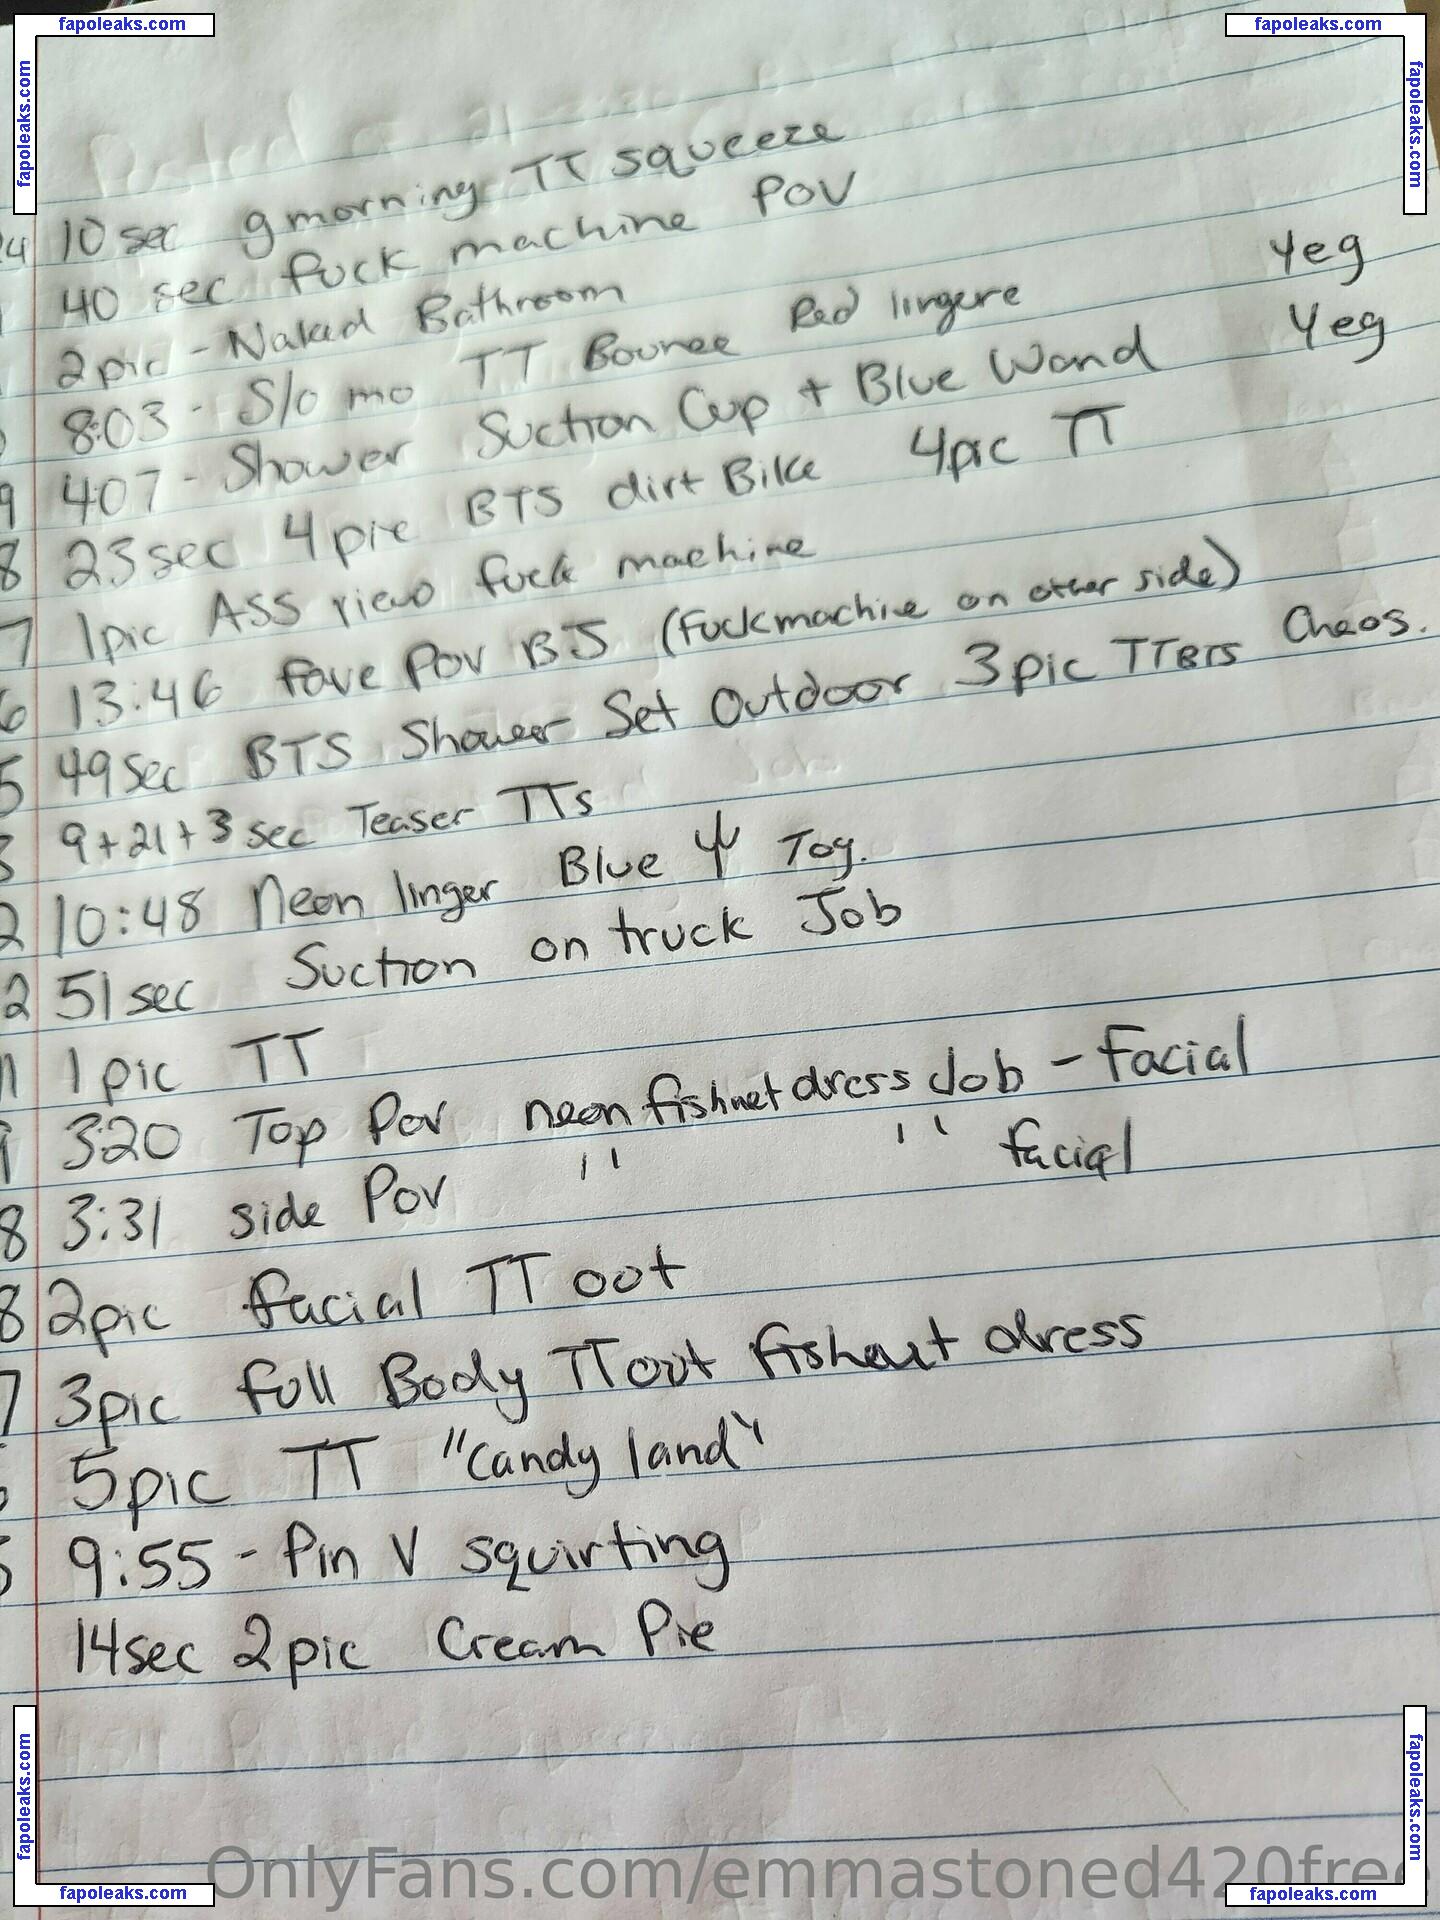 fapoleaks.com fapoleaks.com
fapoleaks.com fapoleaks.com
24 10 sec gmorning TT squeeze
40 sec fuck machine POV
2pic - Naked Bathroom
8:03 - S/o mo TT Bounce Red lingere Yeg
9 407 - Shower Suction Cup + Blue Wand Yeg
8 23sec 4pic BTS dirt Bike 4pic TT
7 1pic ASS view fuck machine
6 13:46 fave POV BJ (fuckmachine on other side)
5 49sec BTS Shower Set Outdoor 3pic TT BTS Chaos.
3 9+21+3 sec Teaser TTs
2 10:48 Neon linger Blue Toy.
2 51sec Suction on truck Job
11 1pic TT
3:20 Top Pov neon fishnet dress Job - Facial
8 3:31 side Pov " " facial
8 2pic facial TT oot
7 3pic full Body TT out fishnet dress
5pic TT "candy land"
5 9:55 - Pin V squirting
14sec 2pic Cream Pie
fapoleaks.com fapoleaks.com
OnlyFans.com/emmastoned420free
fapoleaks.com fapoleaks.com